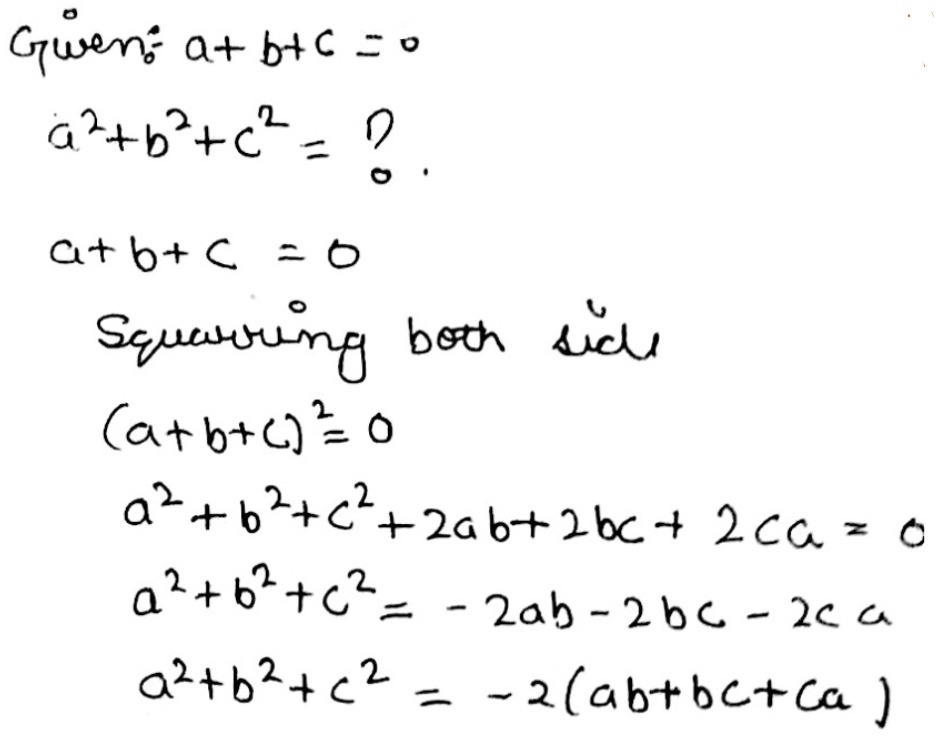 Given: a+b+c=0
a²+b²+c² = ?.
a+b+c = 0
Squarring both side
(a+b+c)²=0
a²+b²+c²+2ab+2bc+2ca=0
a²+b²+c²=-2ab-2bc-2ca
a²+b²+c² = -2(ab+bc+ca)